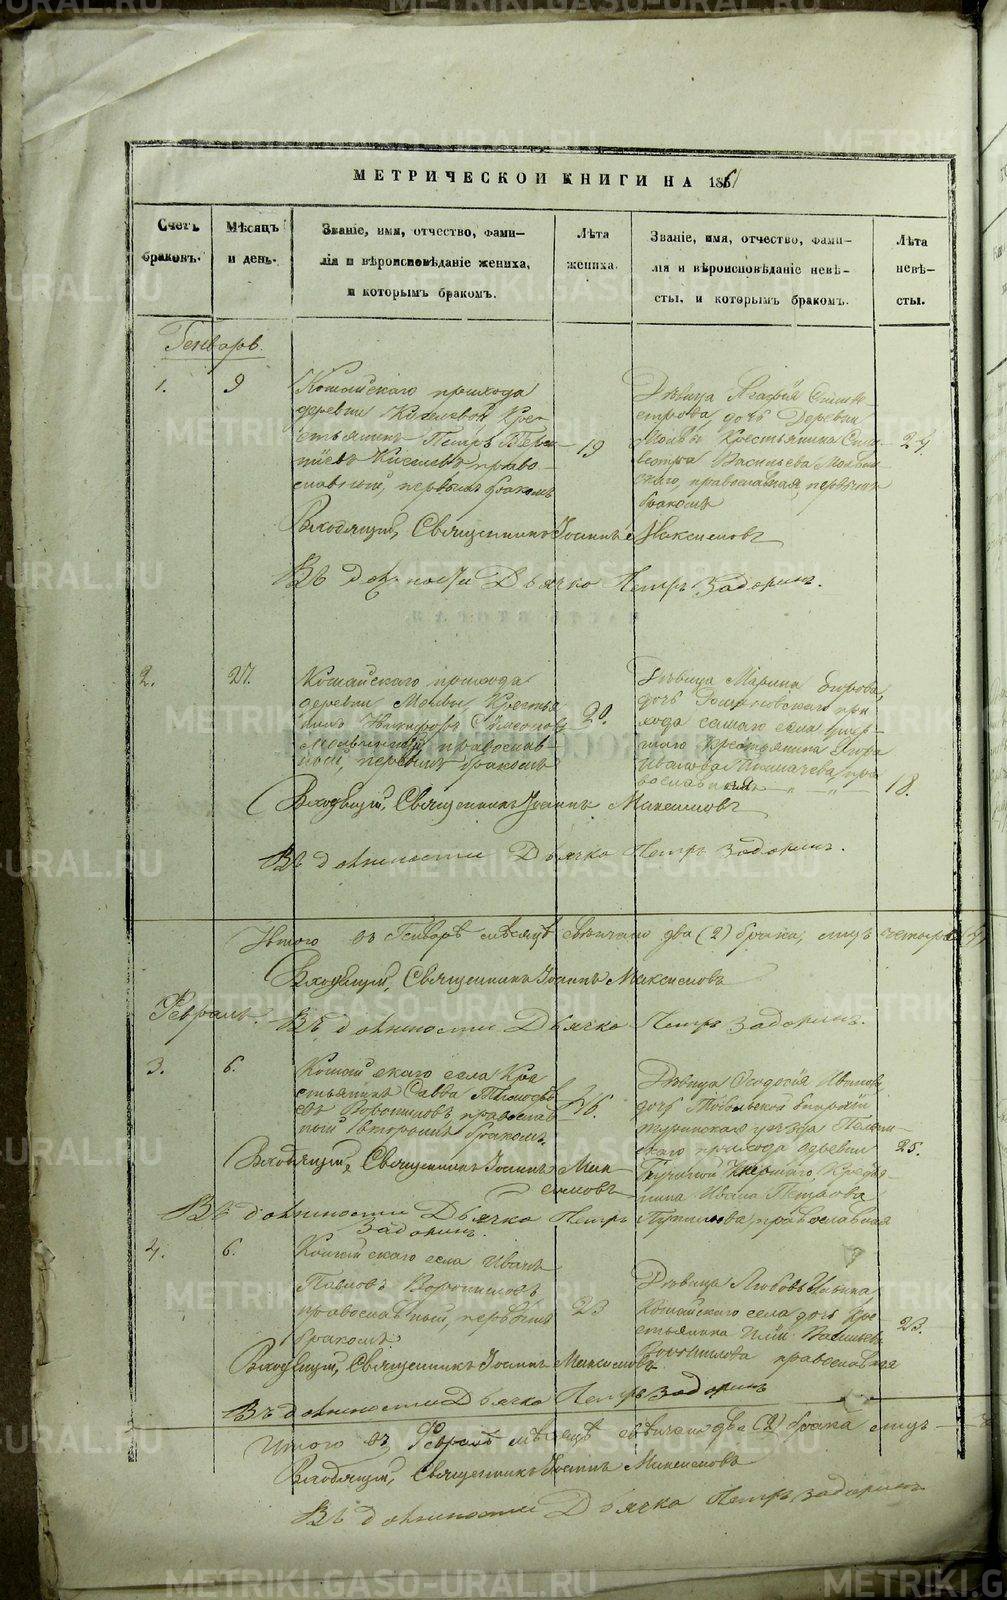 МЕТРИЧЕСКОЙ КНИГИ НА 1861
Счетъ браковъ.
Мѣсяцъ и день.
Званіе, имя, отчество, фами-
лія и вѣроисповѣданіе жениха,
и которымъ бракомъ.
Лѣта
жениха.
Званіе, имя, отчество, фами-
лія и вѣроисповѣданіе невѣ-
сты, и которымъ бракомъ.
Лѣта
невѣ-
сты.
Генварь.
1.
9
Кошайскаго прихода
деревни Киселевой Кре-
стьянинъ Петръ
Киселевъ право-
славный, первымъ бракомъ
19
Дѣвица Агафія Сильве-
строва дочь Деревни
Молвы Крестьянина Силь-
вестра Васильева
православная, первымъ
бракомъ
24.
Священникъ Іоаннъ Максимовъ
Въ должности Дьячка Петръ Задоринъ.
2.
27.
Кошайскаго прихода
деревни Молвы Крестья-
нинъ Никифоръ Симеоновъ
православ-
ный, первымъ бракомъ
20.
Дѣвица Марина
дочь при-
хода самаго села умер-
шаго Крестьянина
Иванова Толмачева, пра-
вославная
18.
Священникъ Іоаннъ Максимовъ
Въ должности Дьячка Петръ Задоринъ.
Итого въ Генварѣ мѣсяцѣ свѣнчано два (2) брака, лицъ четыре 4
Священникъ Іоаннъ Максимовъ
Февраль.
Въ должности Дьячка Петръ Задоринъ.
3.
6.
Кошайскаго села Кре-
стьянинъ Савва Тимофѣ-
евъ Ворошиловъ, православ-
ный вторымъ бракомъ.
46.
Дѣвица Феодосія Иванова
дочь Тобольской Губерніи
Туринскаго уѣзда
прихода деревни
умершаго Кресть-
янина Ивана Петрова
православная
25.
Священникъ Іоаннъ Мак-
симовъ
Въ должности Дьячка Петръ
Задоринъ.
4.
6.
Кошайскаго села Иванъ
Павловъ Ворошиловъ
православный, первымъ
бракомъ
23
Дѣвица Любовь Ильина
Кошайскаго села дочь Кре-
стьянина Ильи
Ворошилова православная
23.
Священникъ Іоаннъ Максимовъ
Въ должности Дьячка Петръ Задоринъ
Итого въ Февралѣ мѣсяцѣ свѣнчано два (2) брака лицъ
Священникъ Іоаннъ Максимовъ
Въ должности Дьячка Петръ Задоринъ
METRIKI.GASO-URAL.RU